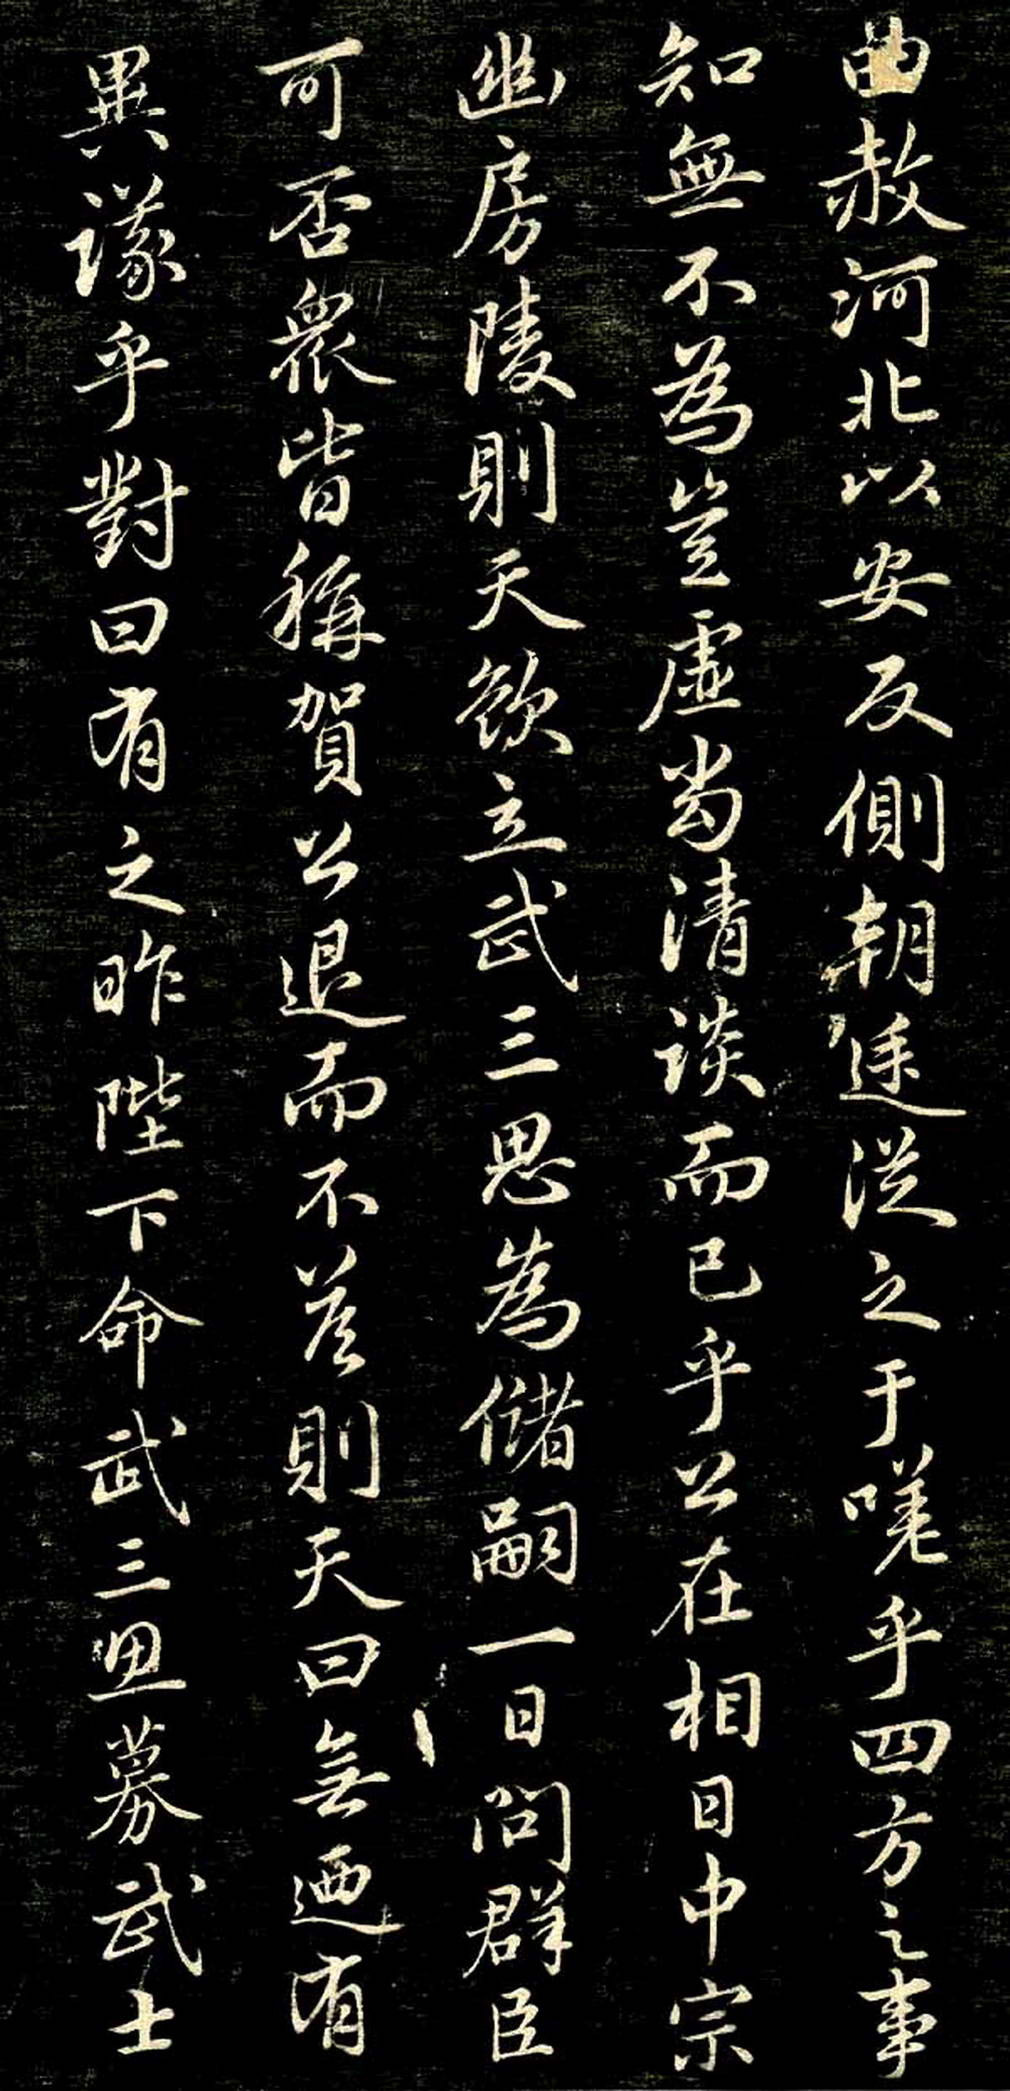 曲赦河北以安反側朝廷從之于嗟乎四方之事
知無不為豈虛尚清談而已乎公在相日中宗
幽房陵則天欲立武三思為儲嗣一日問群臣
可否眾皆稱賀公退而不荅則天曰無廼有
異議乎對曰有之昨陛下命武三思募武士